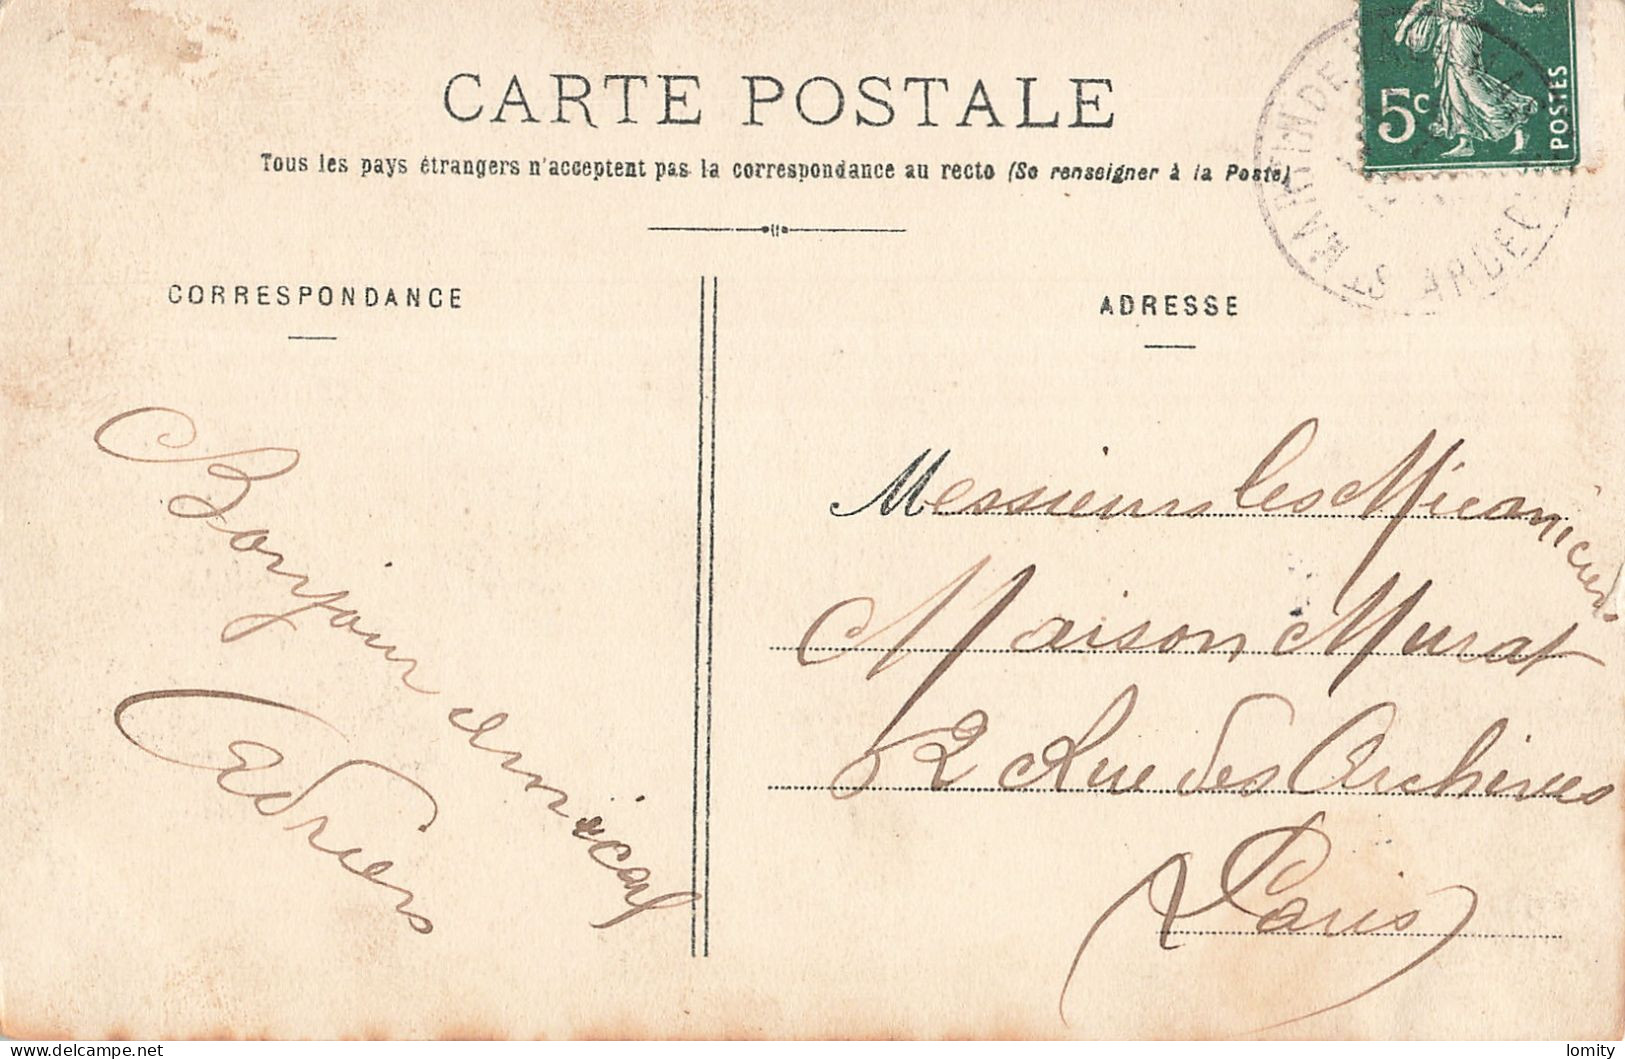 CARTE POSTALE
Tous les pays étrangers n'acceptent pas la correspondance au recto (Se renseigner à la Poste)
5c
POSTES
CORRESPONDANCE
ADRESSE
Bonjour amical
Adrien
Messieurs les Micaniciens
Maison Murat
2 Rue des Archives
Paris
delcampe.net
lomity